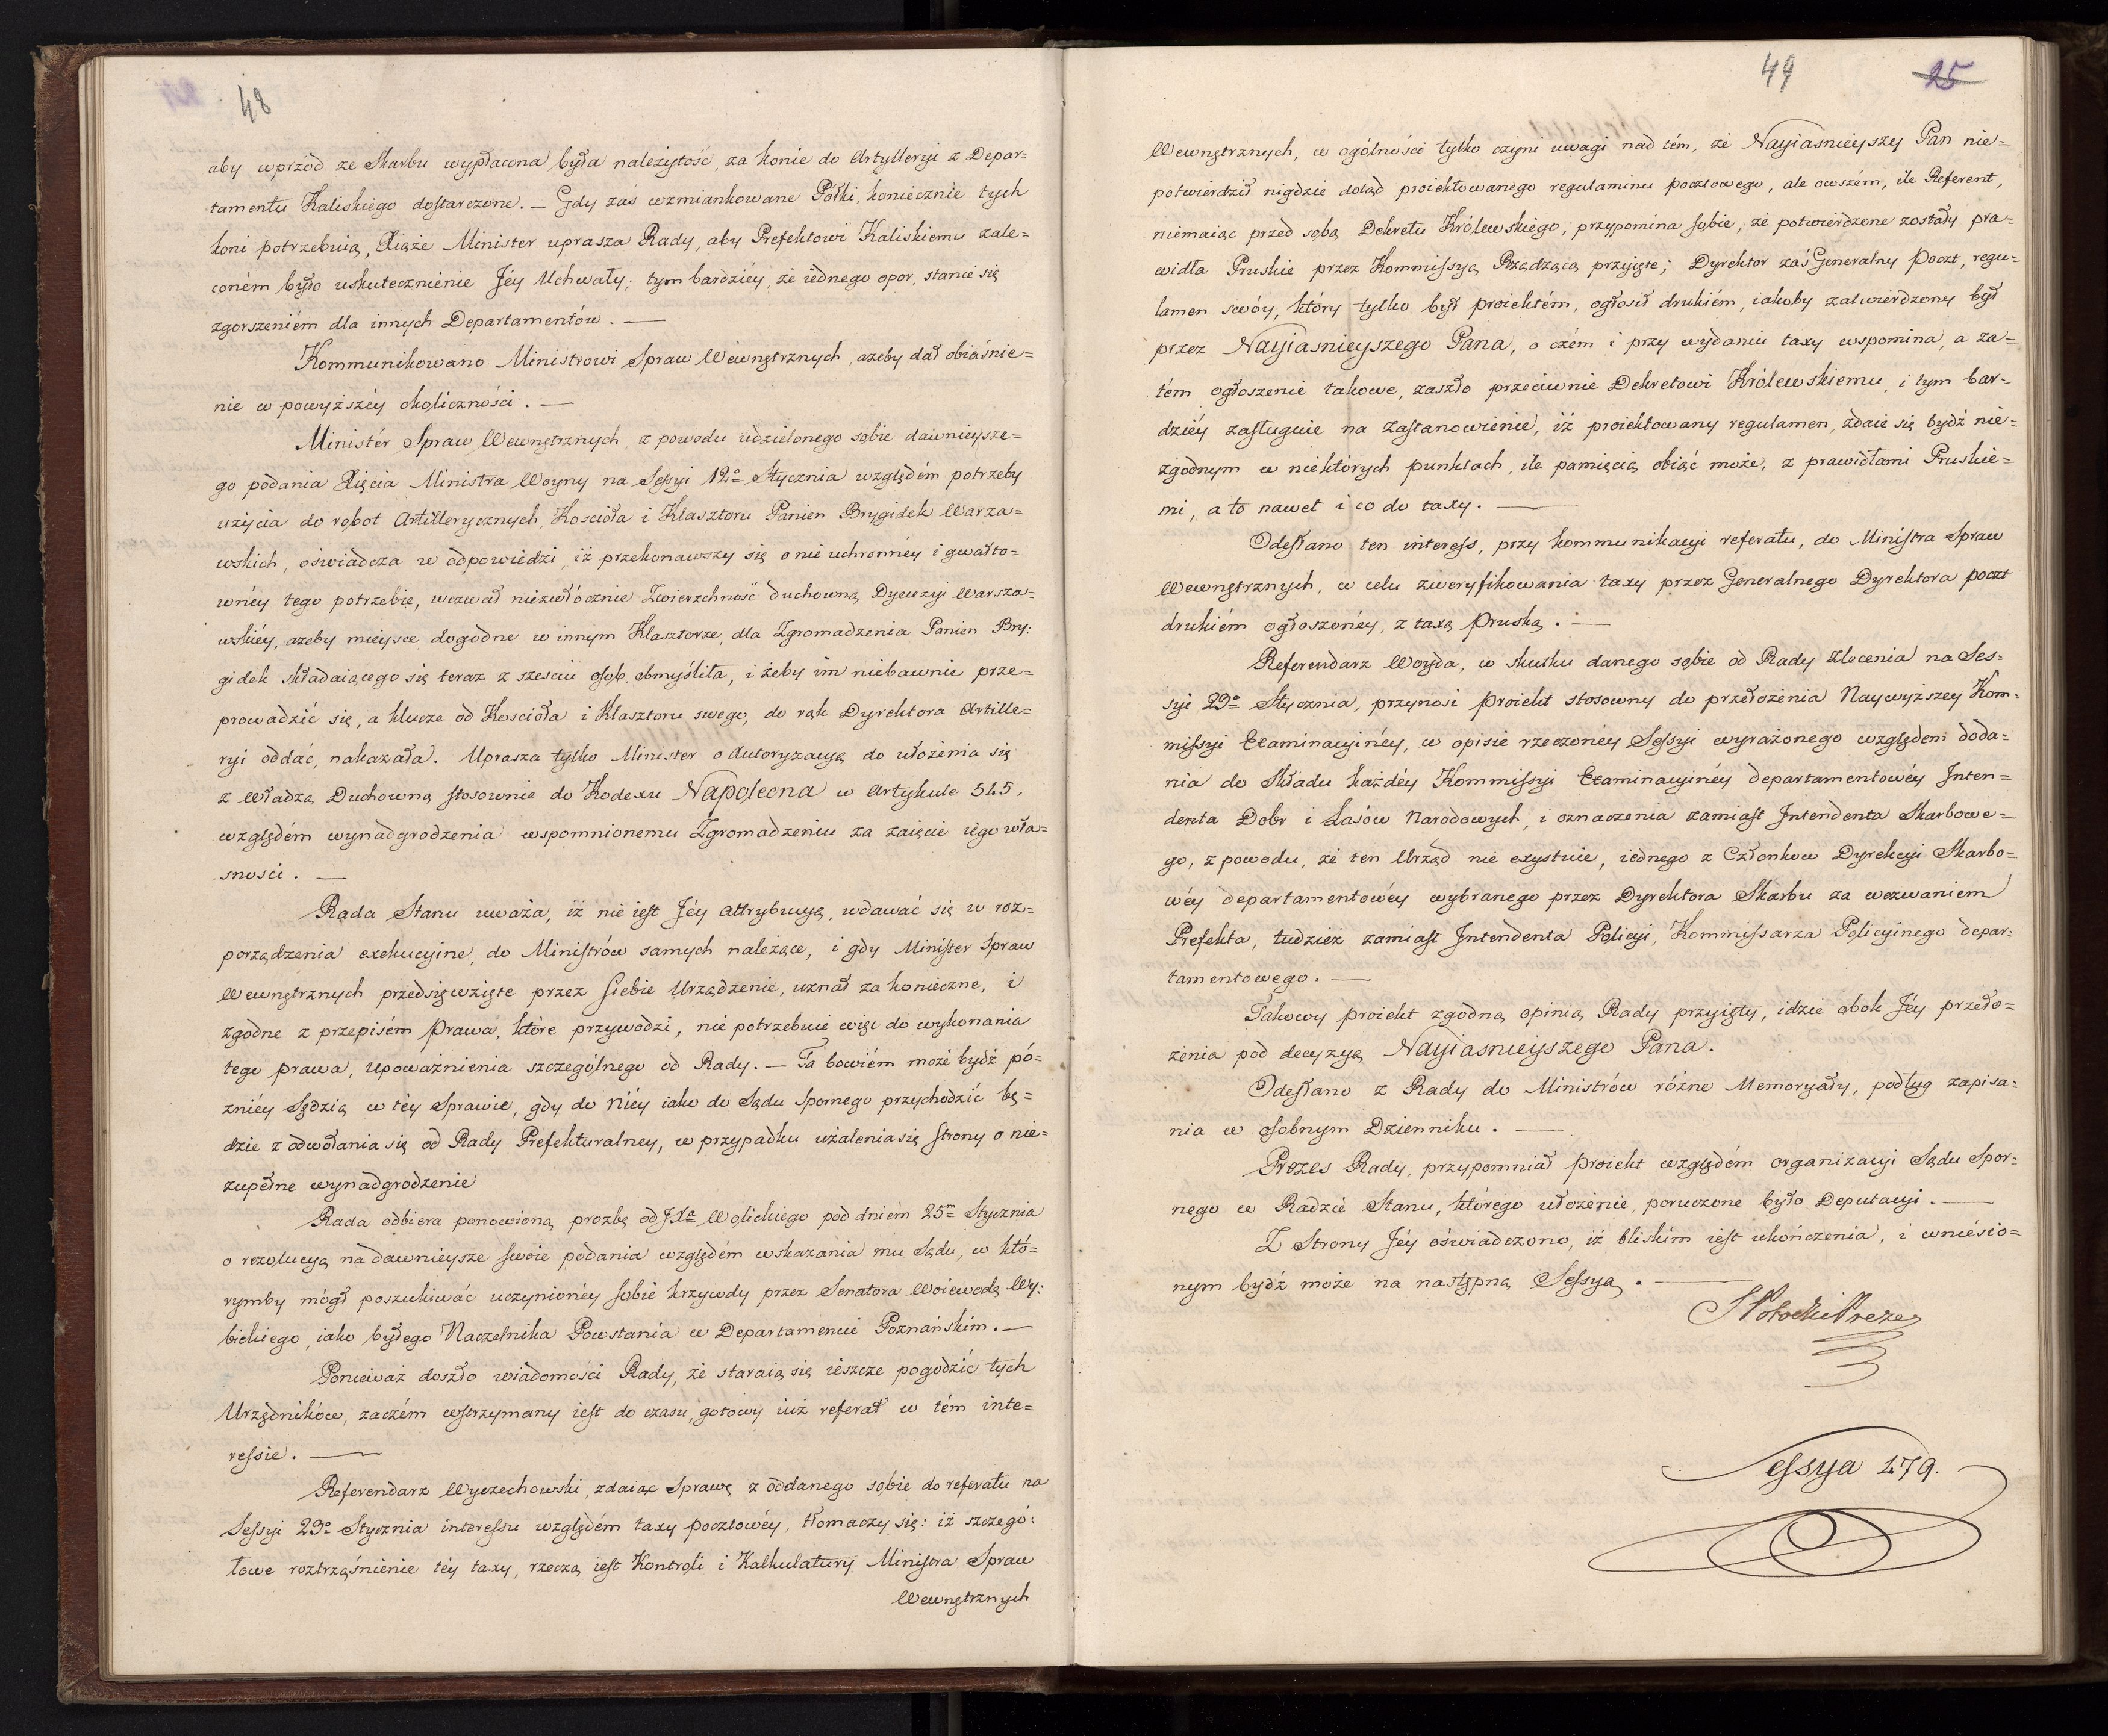 48
aby wprzód ze Skarbu wypłacona była należytość, za konie do Artylleryi z Depar=
tamentu Kaliskiego dostarczone. — Gdy zaś wzmiankowane Półki, koniecznie tych
koni potrzebuią, Xiąże Minister uprasza Rady, aby Prefektowi Kaliskiemu zale=
coném było uskutecznienie Jéy Uchwały; tym bardziéy, że iednego opor, stanie się
zgorszeniém dla innych Departamentów. —
Kommunikowano Ministrowi Spraw Wewnętrznych, ażeby dał obiaśnie=
nie w powyższéy okoliczności. —
Ministér Spraw Wewnętrznych z powodu udzielonego sobie dawnieysze=
go podania Xięcia Ministra Woyny na Sessyi 12º Stycznia względém potrzeby
użycia do robot Artillerycznych, Kościoła i Klasztoru Panien Brygidek Warza=
wskich, oświadcza w odpowiedzi, iż przekonawszy się o nie uchronnéy i gwałto=
wnéy tego potrzebie, wezwał niezwłócznie Zwierzchność duchowną Dyecezyi Warsza=
wskiéy, ażeby mieysce dogodne w innym Klasztorze, dla Zgromadzenia Panien Bry:
gidek składaiącego się teraz z szesciu osób, obmyśliła, i żeby im niebawnie prze=
prowadzić się, a klucze od Kościoła i Klasztoru swego, do rąk Dyrektora Artille=
ryi oddać, nakazała. Uprasza tylko Minister o Autoryzacyą do ułożenia się
z Władzą Duchowną stosownie do Kodexu Napoleona w Artykule 545,
względém wynadgrodzenia wspomnionemu Zgromadzeniu za zaięcie iego wła=
sności. —
Rada Stanu uważa, iż nie iest Jéy attrybucyą, wdawać się w roz=
porządzenia exekucyine, do Ministrów samych należące, i gdy Minister Spraw
Wewnętrznych przedsięwzięte przez siebie Urządzenie, uznał za konieczne, i
zgodne z przepisém Prawa, które przywodzi, nie potrzebuie więc do wykonania
tego prawa, upoważnienia szczególnego od Rady. — Ta bowiém może bydź pó=
zniéy Sędzią w téy Sprawie, gdy do Niéy iako do Sądu Spornego przychodzić bę=
dzie z odwołania się od Rady Prefekturalney, w przypadku użalenia się Strony o nie=
zupełne wynadgrodzenie
Rada odbiera ponowioną prozbę od JXa Wolickiego pod dniém 25m Stycznia
o rezolucyą na dawnieysze swoie podania względém wskazania mu Sądu, w któ=
rymby mógł poszukiwać uczynionéy sobie krzywdy przez Senatora Woiewodę Wy:
bickiego, iako byłego Naczelnika Powstania w Departamencie Poznańskim. —
Ponieważ doszło wiadomości Rady, że staraią się ieszcze pogodzić tych
Urzędników, zaczém wstrzymany iest do czasu, gotowy iuż referat w tém inte=
ressie. —
Referendarz Wyczechowski, zdaiąc Sprawę z oddanego sobie do referatu na
Sessyi 29º Stycznia interessu względém taxy pocztowéy, tłomaczy się: iż szczegó:
łowe roztrząśnienie téy taxy, rzeczą iest Kontroli i Kalkulatury Ministra Spraw
Wewnętrznych
49
25
Wewnętrznych, w ogólności tylko czyni uwagi nad tém, że Nayiaśnieyszy Pan nie=
potwierdził nigdzie dotąd proiektowanego regulaminu pocztowego, ale owszém, ile Referent,
niemaiąc przed sobą Dekretu Królewskiego, przypomina sobie, że potwierdzone zostały pra=
widła Pruskie przez Kommissyą Rządzącą przyięte; Dyrektor zaś Generalny Poczt, regu=
lamen swóy, który tylko był proiektém, ogłosił drukiém, iakoby zatwierdzony był
przez Nayiasnieyszego Pana, o czém i przy wydaniu taxy wspomina, a za=
tém ogłoszenie takowe, zaszło przeciwnie Dekretowi Królewskiemu, i tym bar=
dziéy zasługuie na zastanowienie, iż proiektowany regulamen, zdaie się bydź nie=
zgodnym w niektórych punktach, ile pamięcią obiąć może, z prawidłami Pruskie=
mi, a to nawet i co do taxy. —
Odesłano ten interess, przy kommunikacyi referatu, do Ministra Spraw
Wewnętrznych, w celu zweryfikowania taxy przez Generalnego Dyrektora poczt
drukiém ogłoszonéy, z taxą Pruską. —
Referendarz Woyda, w skutku danego sobie od Rady Zlecenia na Ses=
syi 29º Stycznia, przynosi proiekt stosowny do przełożenia Naywyższey Kom=
missyi Examinacyinéy, w opisie rzeczonéy Sessyi wyrażonego względem doda=
nia do Składu każdéy Kommissyi Examinacyinéy departamentowéy Inten=
denta Dobr i Lasów Narodowych, i oznaczenia zamiast Intendenta Skarbowe=
go, z powodu, że ten Urząd nie exystuie, iednego z Członkow Dyrekcyi Skarbo=
wéy departamentowéy wybranego przez Dyrektora Skarbu za wezwaniem
Prefekta, tudzież zamiast Intendenta Policyi, Kommissarza Policyinego depar=
tamentowego. —
Takowy proiekt zgodną opinią Rady przyięty, idzie obok Jéy przeło=
żenia pod decyzyą Nayiasnieyszego Pana.
Odesłano z Rady do Ministrów różne Memoryały, podług zapisa=
nia w osobnym Dzienniku. —
Prezes Rady, przypomniał proiekt względém organizacyi Sądu Spor=
nego w Radzie Stanu, którego ułożenie, poruczone było Deputacyi. —
Z Strony Jéy oświadczono, iż bliskim iest ukończenia, i wniesio=
nym bydź może na następną Sessyą. —
S Potocki Prezes
Sessya 279.